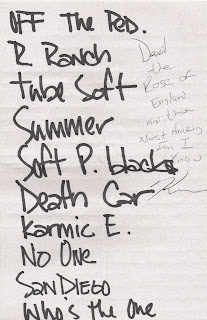 OFF The PeD.
R Ranch
Tube Soft
Summer
Soft P. black
Death Car
Karmic E.
No One
SAN DIEGO
Who's the One
David
the
Rose of
England
and the
Most
I
Know